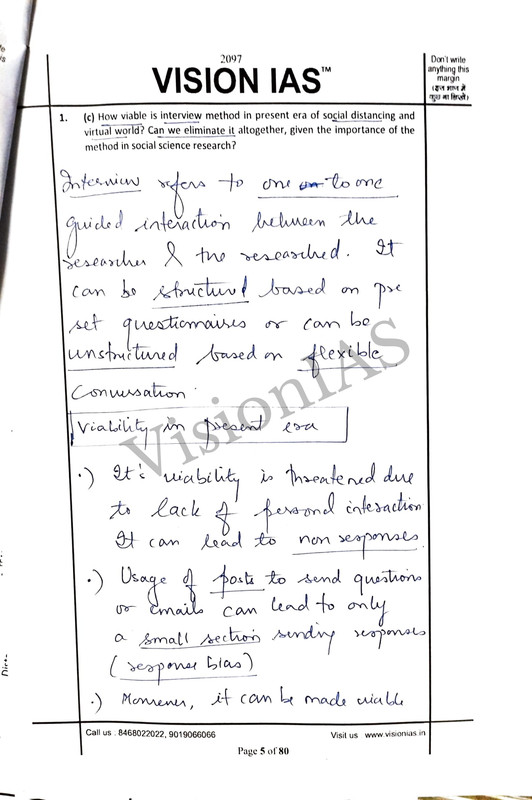 2097
VISION IAS™
Don't write
anything this
margin
(इस भाग में
कुछ ना लिखें)
1. (c) How viable is interview method in present era of social distancing and
virtual world? Can we eliminate it altogether, given the importance of the
method in social science research?
Interview refers to one to one
guided interaction between the
researcher & the researched. It
can be structured based on pre
set questionnaires or can be
unstructured based on flexible
Conversation.
Viability in present era
VisionIAS
.) It's viability is threatened due
to lack of personal interaction
It can lead to non responses.
.) Usage of posts to send questions
or emails can lead to only
a small section sending responses
(response bias)
.) Moreover, it can be made viable
Call us : 8468022022, 9019066066
Visit us www.visionias.in
Page 5 of 80